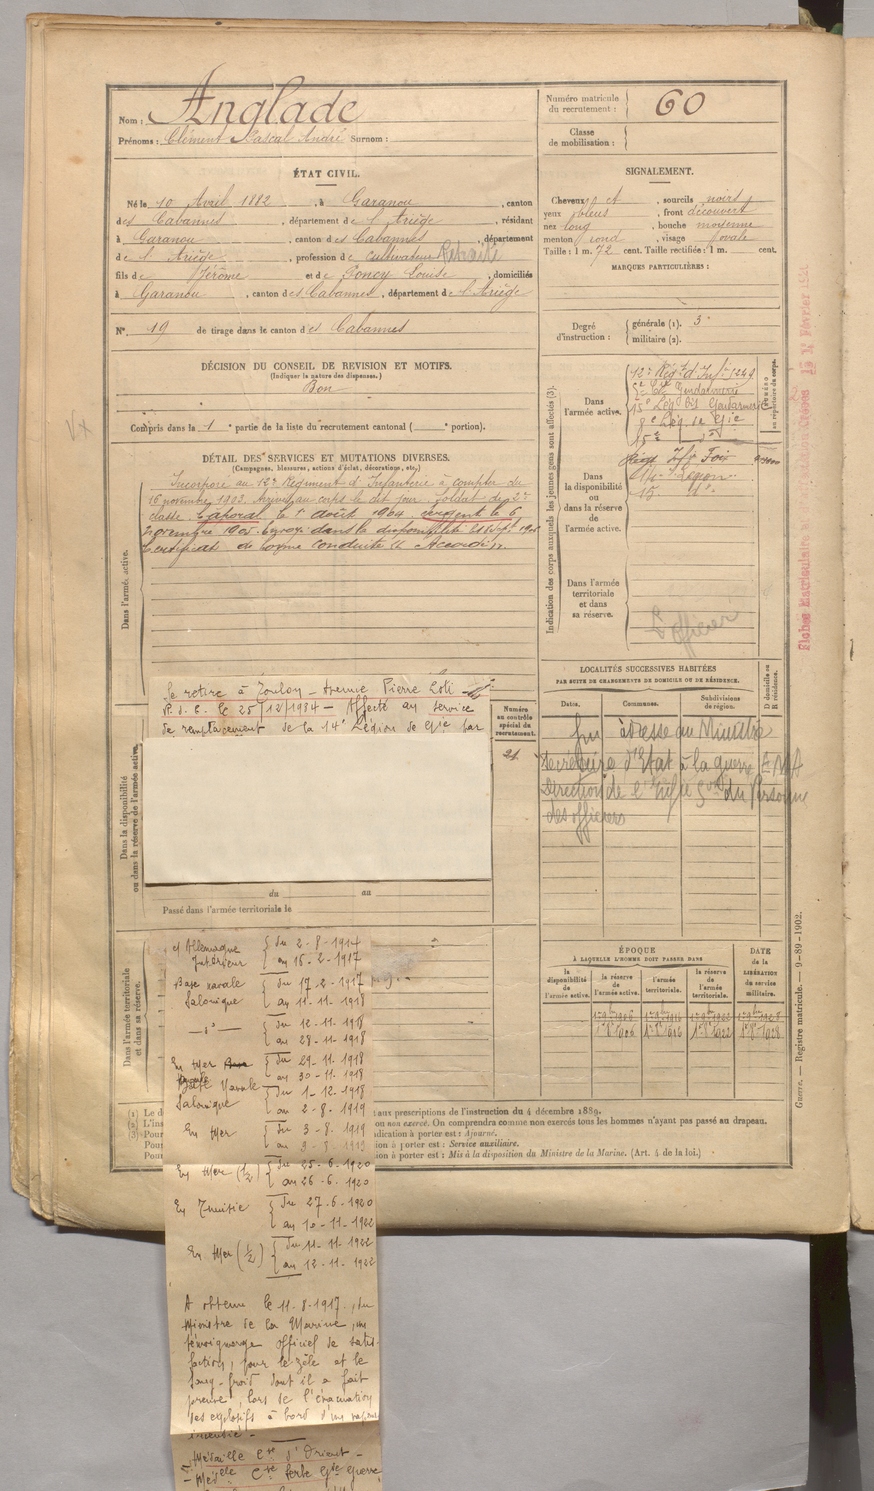 Nom : Anglade
Prénoms : Clément Pascal André Surnom :
Numéro matricule
du recrutement : 60
Classe
de mobilisation :
ÉTAT CIVIL.
Né le 10 Avril 1882, à Garanou, canton
des Cabannes, département de l'Ariège, résidant
à Garanou, canton des Cabannes, département
de l'Ariège, profession de cultivateur Retraité
fils de Jérôme et de Poncy Louise, domiciliés
à Garanou, canton des Cabannes, département de l'Ariège
N° 19 de tirage dans le canton des Cabannes
SIGNALEMENT.
Cheveux et sourcils noirs
yeux bleus, front découvert
nez long, bouche moyenne
menton rond, visage ovale
Taille : 1 m. 72 cent. Taille rectifiée : 1 m. cent.
MARQUES PARTICULIÈRES :
Degré
d'instruction :
générale (1). 3
militaire (2).
DÉCISION DU CONSEIL DE REVISION ET MOTIFS.
(Indiquer la nature des dispenses.)
Bon
Compris dans la 1e partie de la liste du recrutement cantonal ( portion).
DÉTAIL DES SERVICES ET MUTATIONS DIVERSES.
(Campagnes, blessures, actions d'éclat, décorations, etc.)
Dans l'armée active.
Incorporé au 12e Régiment d'Infanterie à compter du
16 novembre 1903. Arrivé au corps le dit jour. Soldat de 2e
classe. Caporal le 1er août 1904. Sergent le 6
novembre 1905. Envoyé dans la disponibilité
Certificat de bonne conduite Accordé.
Se retire à Toulon - Avenue Pierre Loti
R. d. C. le 25/12/1934 - Affecté au service
de remplacement de la 14e Légion de Gie par
Dans la disponibilité
ou dans la réserve de l'armée active.
du au
Passé dans l'armée territoriale le
Numéro
au contrôle
spécial du
recrutement.
21
Indication des corps auxquels les jeunes gens sont affectés (3).
Dans
l'armée active.
12e Rég. d'Inf.
Cie Gendarmerie
15e Lég. bis Gendarmerie
8e Lég. de Gie
15e
Dans
la disponibilité
ou
dans la réserve
de
l'armée active.
Foix
14e Légion
15 do
Dans l'armée
territoriale
et dans
sa réserve.
Officier
LOCALITÉS SUCCESSIVES HABITÉES
PAR SUITE DE CHANGEMENTS DE DOMICILE OU DE RÉSIDENCE.
Dates.
Communes.
Subdivisions
de région.
D domicile ou
R résidence.
adresse au Ministre
Secrétaire d'Etat à la guerre EMA
Direction de l'Inf.ie du Personnel
des officiers
ÉPOQUE
À LAQUELLE L'HOMME DOIT PASSER DANS
la
disponibilité
de
l'armée active.
la réserve
de
l'armée active.
l'armée
territoriale.
la réserve
de
l'armée
territoriale.
DATE
de la
LIBÉRATION
du service
militaire.
Dans l'armée territoriale
et dans sa réserve.
c/ Allemagne
Intérieur
du 2-8-1914
au 16-2-1917
Base navale
Salonique
du 17-2-1917
au 11-11-1918
—d°—
du 12-11-1918
au 28-11-1918
En Mer
du 29-11-1918
au 30-11-1918
Base Navale
Salonique
du 1-12-1918
au 2-8-1919
En Mer
du 3-8-1919
au 9-8-1919
En Mer (1/2)
du 25-6-1920
au 26-6-1920
En Tunisie
du 27-6-1920
au 10-11-1922
En Mer (1/2)
du 11-11-1922
au 12-11-1922
A obtenu le 11-8-1917, du
Ministre de la Marine, un
témoignage officiel de satis-
faction, pour le zèle et le
sang-froid dont il a fait
preuve, lors de l'évacuation
des explosifs à bord d'un vapeur
incendié -
Médaille Cve d'Orient -
- Médlle Cve Serbe Gde Guerre
(1) Le d aux prescriptions de l'instruction du 4 décembre 1889.
(2) L'ins ou non exercé. On comprendra comme non exercés tous les hommes n'ayant pas passé au drapeau.
(3) Pour indication à porter est : Ajourné.
Pour à porter est : Service auxiliaire.
Pour à porter est : Mis à la disposition du Ministre de la Marine. (Art. 4 de la loi.)
Guerre. — Registre matricule. — 9-89-1902.